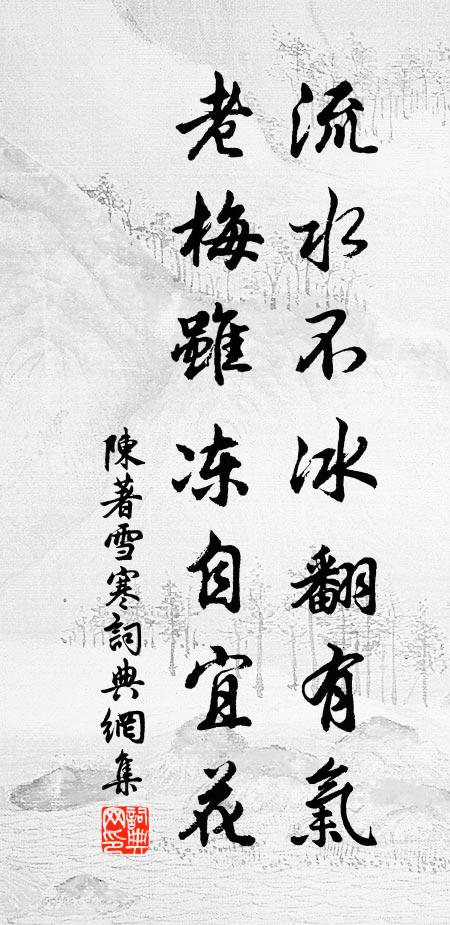 流水不冰翻有氣
老梅雖冻自宜花
陳著雪寒詞典網集
詞典网印